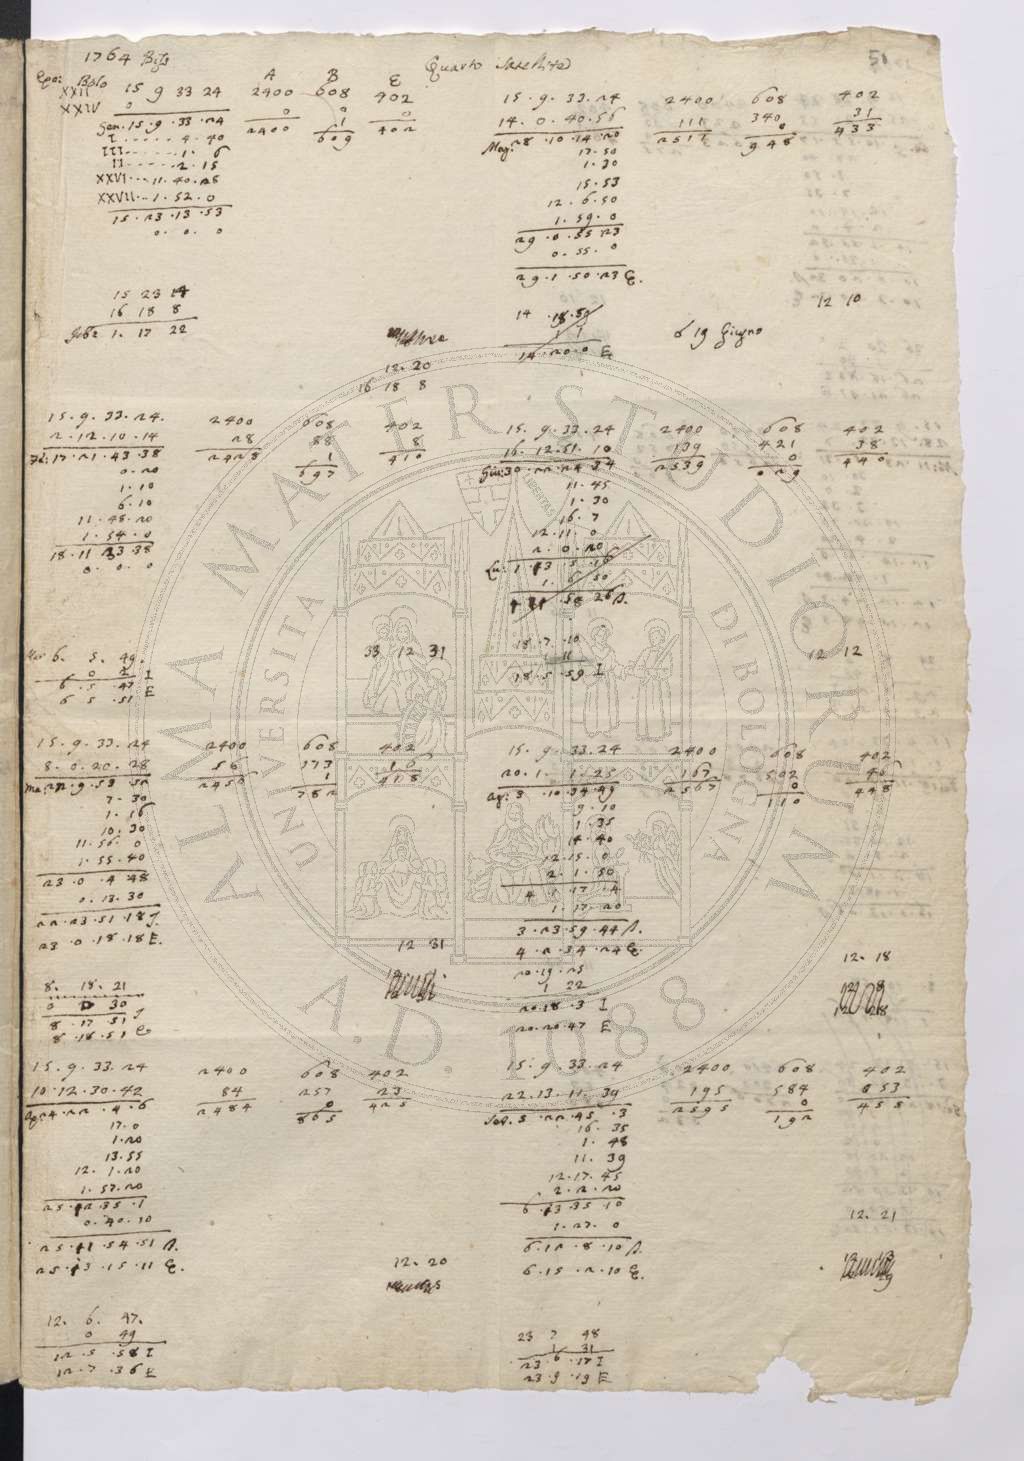 1764 Bis
Quarto Satellite
51
Epo: Bolo
A B E
XXII 15 9 33 24 2400 608 402
XXIV 0 0 0 0
Gen. 15.9.33.24 2400 1 402
609
I ...... 4.40
III ...... 1. 6
II ...... 2.15
XXVI ... 11.40.28
XXVII ... 1.52.0
15.23.13.53
0. 0. 0
15 23 14
16 18 8
1. 17 22
12.20
16 18 8
15.9.33.24 2400 608 402
14.0.40.56 111 340 31
Mag: 28.10.14.20 2511 0 433
948
17.50
1.30
15.53
12.6.50
1.59.0
29.0.55 23
0.55.0
29.1.50.23 E.
14.18.59
1 1
14.20.0 E
12 10
6 19 Giugno
15.9.33.24. 2400 608 402
2.12.10.14 28 88 8
Fe: 17.21.43.38 2428 1 410
697
0.20
1.10
6.10
11.48.20
1.54.0
18.11 23.38
0. 0. 0
15.9.33.24 2400 608 402
16.12.51.10 139 421 38
Giu: 30.22.24.34 2539 0 440
029
11.45
1.30
16.7
12.11.0
2.0.20
Lu: 1.13 5.16
1. 6 50
26 A.
Mar 6. 5. 49.
0 2
6.5.47 I
6 5.51 E
33 12 31
18.7.10
1 11
18.5.59 I
12 12
15.9.33.24 2400 608 402
8.0.20.28 56 173 16
Ma: 22.9.53 52 2456 1 418
782
7.30
1.56
10.30
11.56.0
1.55.40
23.0.4 48
0.13.30
22.23.51.18 I.
23.0.18.18 E.
12 31
15.9.33.24 2400 608 402
20.1.1.25 167 502 46
Ag: 3.10.34.49 2567 0 448
110
9.10
1.35
14.40
12.15.0
2.1.50
4 1 17.4
1.17.20
3.23.59.44 A.
4.2.34.24 E.
12.18
8. 18. 21
0 0 30
8.17 51 I
8.18.51 E
20.19.25
1 22
20.18.3 I
20.20.47 E
15.9.33.24 2400 608 402
10.12.30.42 84 257 23
Ap: 24.22.4.6 2484 0 425
865
17.0
1.20
13.55
12. 1.20
1.57.20
25.12.35.1
0.40.10
25.11.54.51 A.
25.13.15.11 E.
12.20
15.9.33.24 2400 608 402
22.13.11.39 195 584 53
Set. 5.22.45.3 2595 0 455
192
16.35
1. 48
11. 39
12.17.45
2.2.20
6.13.35.10
1.27.0
6.12.8.10 A.
6.15.2.10 E.
12.21
12. 6. 47.
0 49
12.5.58 I
12.7.36 E
23 7 48
1 31
23.6.17 I
23.9.19 E
ALMA MATER STUDIORUM
UNIVERSITÀ DI BOLOGNA
A.D. 1088
LIBERTAS